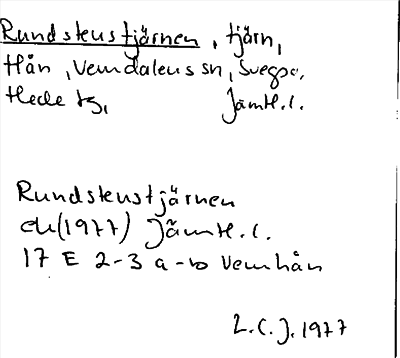 Rundstenstjärnen, tjärn,
Hån, Vemdalens sn, Svegs o.
Hede tg, Jämtl. l.
Rundstenstjärnen
ek (1977) Jämtl. l.
17 E 2-3 a-b Vemhån
L.C.J. 1977